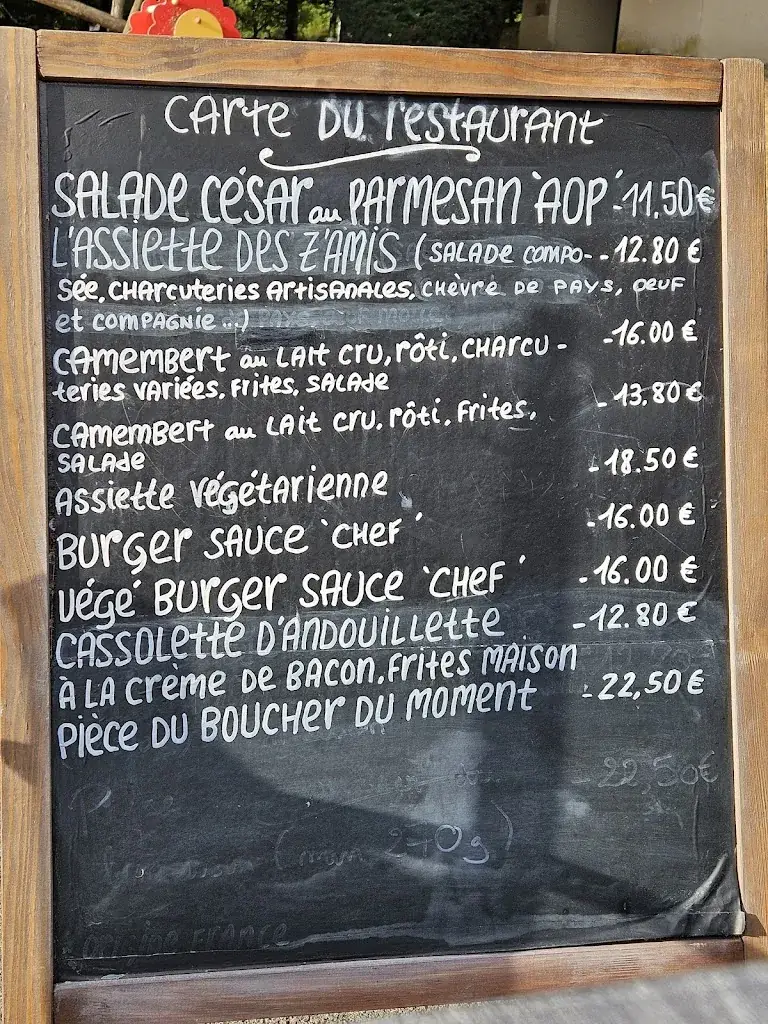 CARTE DU RESTAURANT
SALADE CÉSAR au PARMESAN 'AOP' - 11.50 €
L'ASSIETTE DES Z'AMIS (SALADE COMPO- - 12.80 €
SÉE, CHARCUTERIES ARTISANALES, CHÈVRE DE PAYS, OEUF
et COMPAGNIE...)
CAMEMBERT au LAIT CRU, RÔTI, CHARCU- - 16.00 €
TERIES VARIÉES, FRITES, SALADE
CAMEMBERT au LAIT CRU, RÔTI, FRITES, - 13,80 €
SALADE
ASSIETTE VÉGÉTARIENNE - 18.50 €
BURGER SAUCE 'CHEF' - 16.00 €
VÉGÉ BURGER SAUCE 'CHEF' - 16.00 €
CASSOLETTE D'ANDOUILLETTE - 12.80 €
À LA CRÈME DE BACON, FRITES MAISON
PIÈCE DU BOUCHER DU MOMENT - 22,50 €
- 22,50€
(min 240g)
origine FRANCE